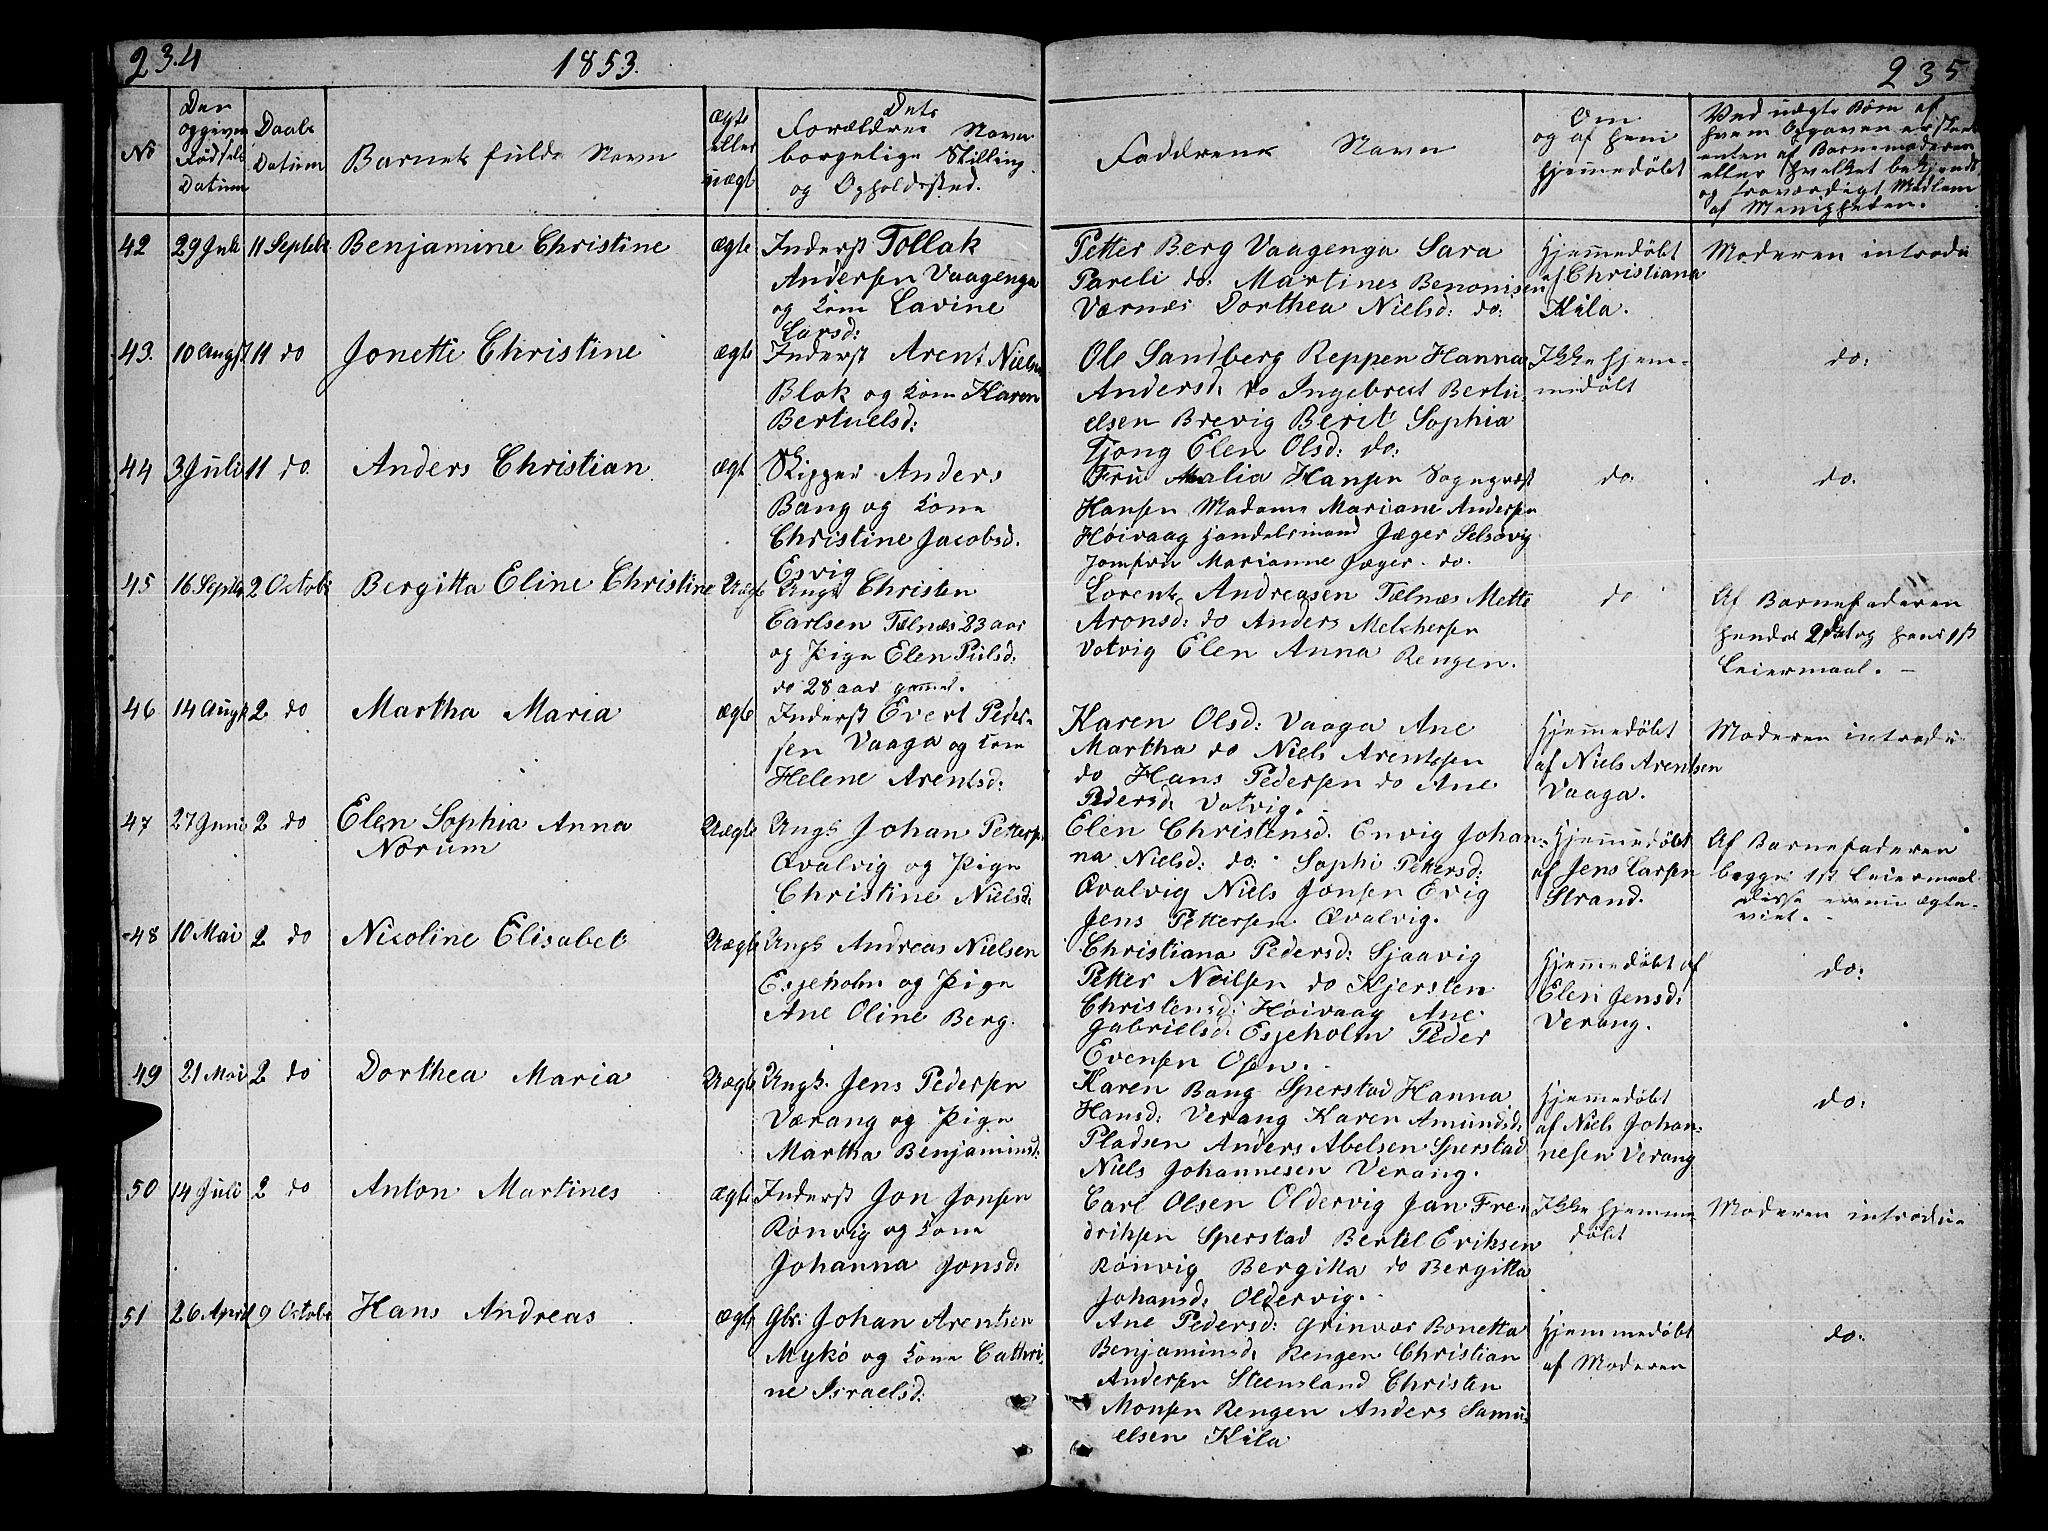 234
1853.
235
No
Den opgivne Fødsels Datum
Daabs Datum
Barnets fulde Navn
ægte eller uægt
Dets Forældres Navn borgelige Stilling og Opholdssted.
Faddrenes Navn
Om og af hvem hjemmedøbt
Ved uægte Børn af hvem Opgaven er skeet enten af Barnemoderen eller hvilket bekjendt og troværdigt Medlem af Menigheden.
42 29 Juli 11 Septebr Benjamine Christine ægte Inderst Tollak
Andersen Vaagenga
og Kone Lavine
Larsd:
Petter Berg Vaagenga Sara
Pareli do: Martines Benonisen
Værnæs Dorthea Nielsd: do:
Hjemmedøbt
af Christiana
Kila.
Moderen introdu
43. 10 Augst 11 do Jonette Christine ægte Inderst Arent Nielsen
Blok og Kone Karen
Bertuelsd:
Ole Sandberg Reppen Hanna
Andersd: do Ingebret Bertu
elsen Brevig Berit Sophia
Tjong Elen Olsd: do:
Ikke hjem-
medøbt
do:
44 3 Juli 11 do Anders Christian ægt Skipper Anders
Bang og Kone
Christine Jacobsd.
Esvig
Fru Malia Hansen Sognepræst
Hansen Madame Mariane Andersen
Høivaag Handelsmand Jæger Selsøvig
Jomfru Marianne Jæger do.
do:
do:
45 16 Septbr 2 Octobr Bergitta Eline Christine Uægte Ungk Christen
Carlsen Telnæs 23 aar
og Pige Elen Pulsd:
do 28 aar gammel.
Lorents Andreasen Telnæs Mette
Aronsd: do Anders Melchersen
Votvig Elen Anna Rengen.
do
Af Barnefaderen
hendes 2det og hans 1st
Leiermaal. –
46 14 Augst 2 do Martha Maria ægte Inderst Evert Peder-
sen Vaaga og Kone
Helene Arentsd:
Karen Olsd: Vaaga Ane
Martha do Niels Arentsen
do Hans Pedersen do Ane
Pedersd: Votvig.
Hjemmedøbt
af Niels Arentsen
Vaaga.
Moderen introdu
47 27 Juni 2 do Elen Sophia Anna
Norum
Uægte Ungk Johan Pettersen
Qvalvig og Pige
Christine Nielsd:
Elen Christensd: Envig Johan-
na Nielsd: do: Sophi Pettersd:
Qvalvig Niels Jonsen Evig
Jens Pettersen Qvalvig.
Hjemmedøbt
af Jens Larsen
Strand.
Af Barnefaderen
begge 1st Leiermaal
disse ere nu ægte-
viet.
48 10 Mai 2 do Nicoline Elisabet Uægte Ungk Andreas Nielsen
Esjeholm og Pige
Ane Oline Berg.
Christiana Pedersd: Sjaavig
Petter Neilsen do Kjersten
Christensd: Høivaag Ane
Gabrielsd: Esjeholm Peder
Evensen Osen.
Hjemmedøbt af
Elen Jensd:
Verang.
do:
49 21 Mai 2 do Dorthea Maria Uægte Ungk. Jens Pedersen
Værang og Pige
Martha Benjaminsd:
Karen Bang Sperstad Hanna
Hansd: Verang Karen Amundsd:
Pladsen Anders Abelsen Sperstad
Niels Johannesen Verang.
Hjemedøbt
af Niels Johan-
nesen Verang
do:
50 14 Juli 2 do Anton Martines ægte Inderst Jon Jonsen
Rønvig og Kone
Johanna Jonsd:
Carl Olsen Oldervig Jan Fre-
driksen Sperstad Bertel Eriksen
Rønvig Bergitta do Bergitta
Johansd: Oldervig.
Ikke hjemme-
døbt
Moderen introdu-
51 26 April 9 Octobr Hans Andreas ægte Gbr: Johan Arentsen
Mykø og Kone Cathri-
ne Israelsd:
Ane Pedersd: Grinvær Bonetta
Benjaminsd: Rengen Christian
Andersen Steensland Christen
Monsen Rengen Anders Samu-
elsen Kila
Hjemmedøbt
af Moderen
do: